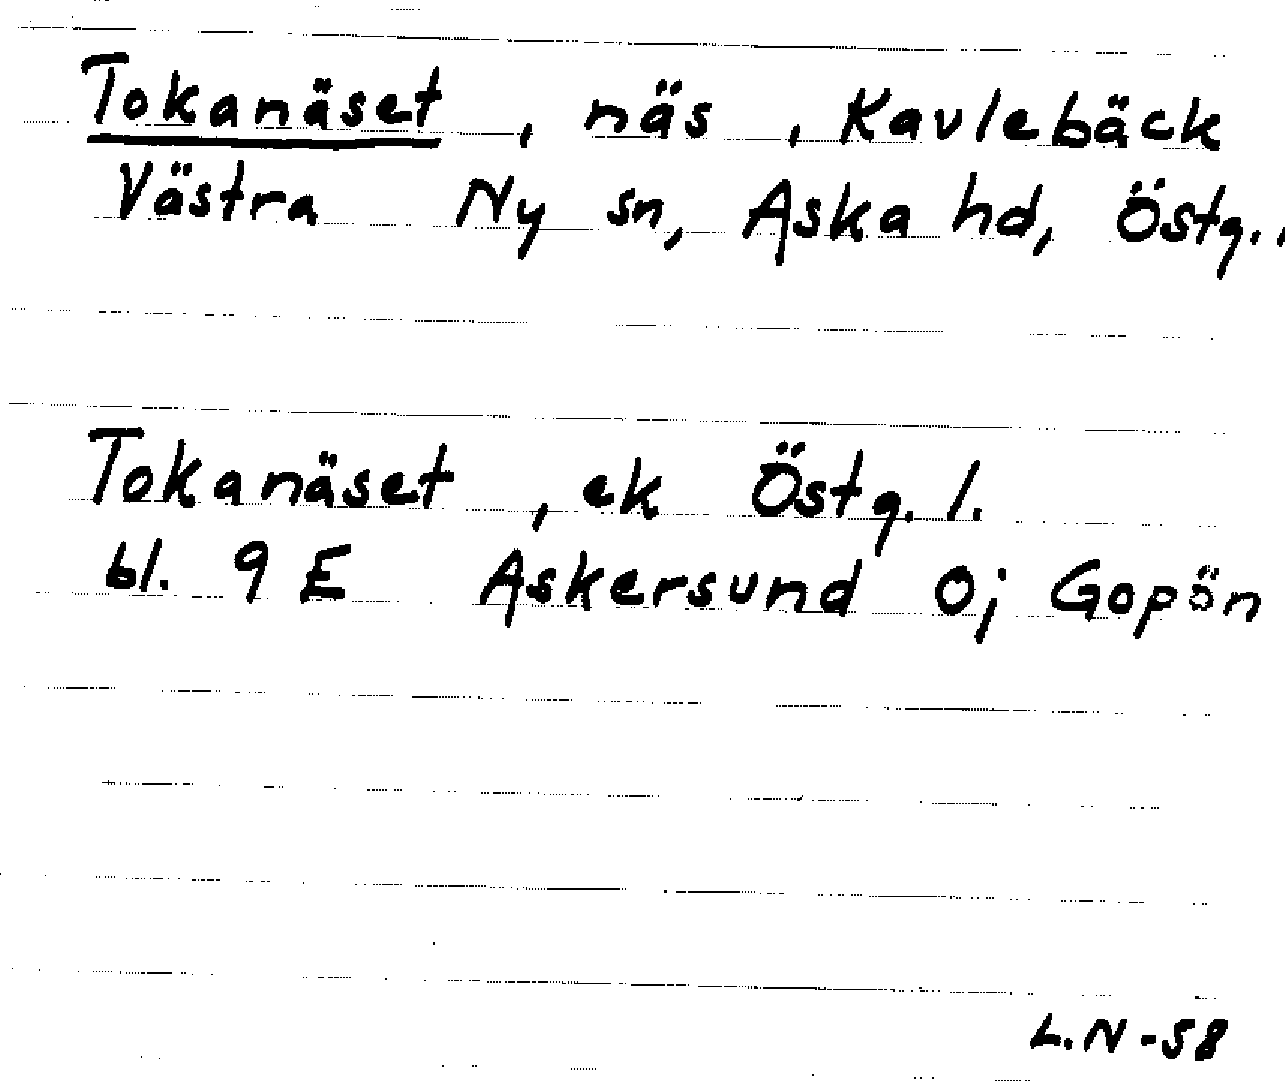 Tokanäset, näs, Kavlebäck
Västra Ny sn, Aska hd, Östg.
Tokanäset, ek Östg. l.
bl. 9 E Askersund 0j Gopön
L.N -58